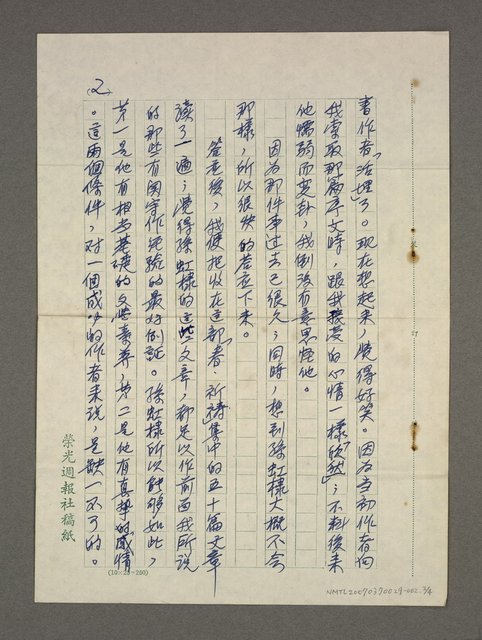 書作者「活埋」了。現在想起來，覺得好笑。因為當初作者向
我索取那篇序文時，跟我接受的心情一樣「欣然」；不料後來
他懦弱而變卦，我倒沒有意思怪他。
因為那件事過去已很久；同時，想到孫虹樣大概不會
那樣，所以很快的答應下來。
答應後，我便把收在這部「春．祈禱」集中的五十篇文章
讀了一遍；覺得孫虹樣的這些文章，都足以作前面我所說
的那些有關寫作經驗的最好例証。孫虹樣所以能夠如此，
第一是他有相當基礎的文學素養；第二是他有真摯的感情
。這兩個條件，對一個成功的作者來說，是缺一不可的。
(2)
榮光週報社稿紙
(10×25=250)
NMTL20070370029-002.3/4